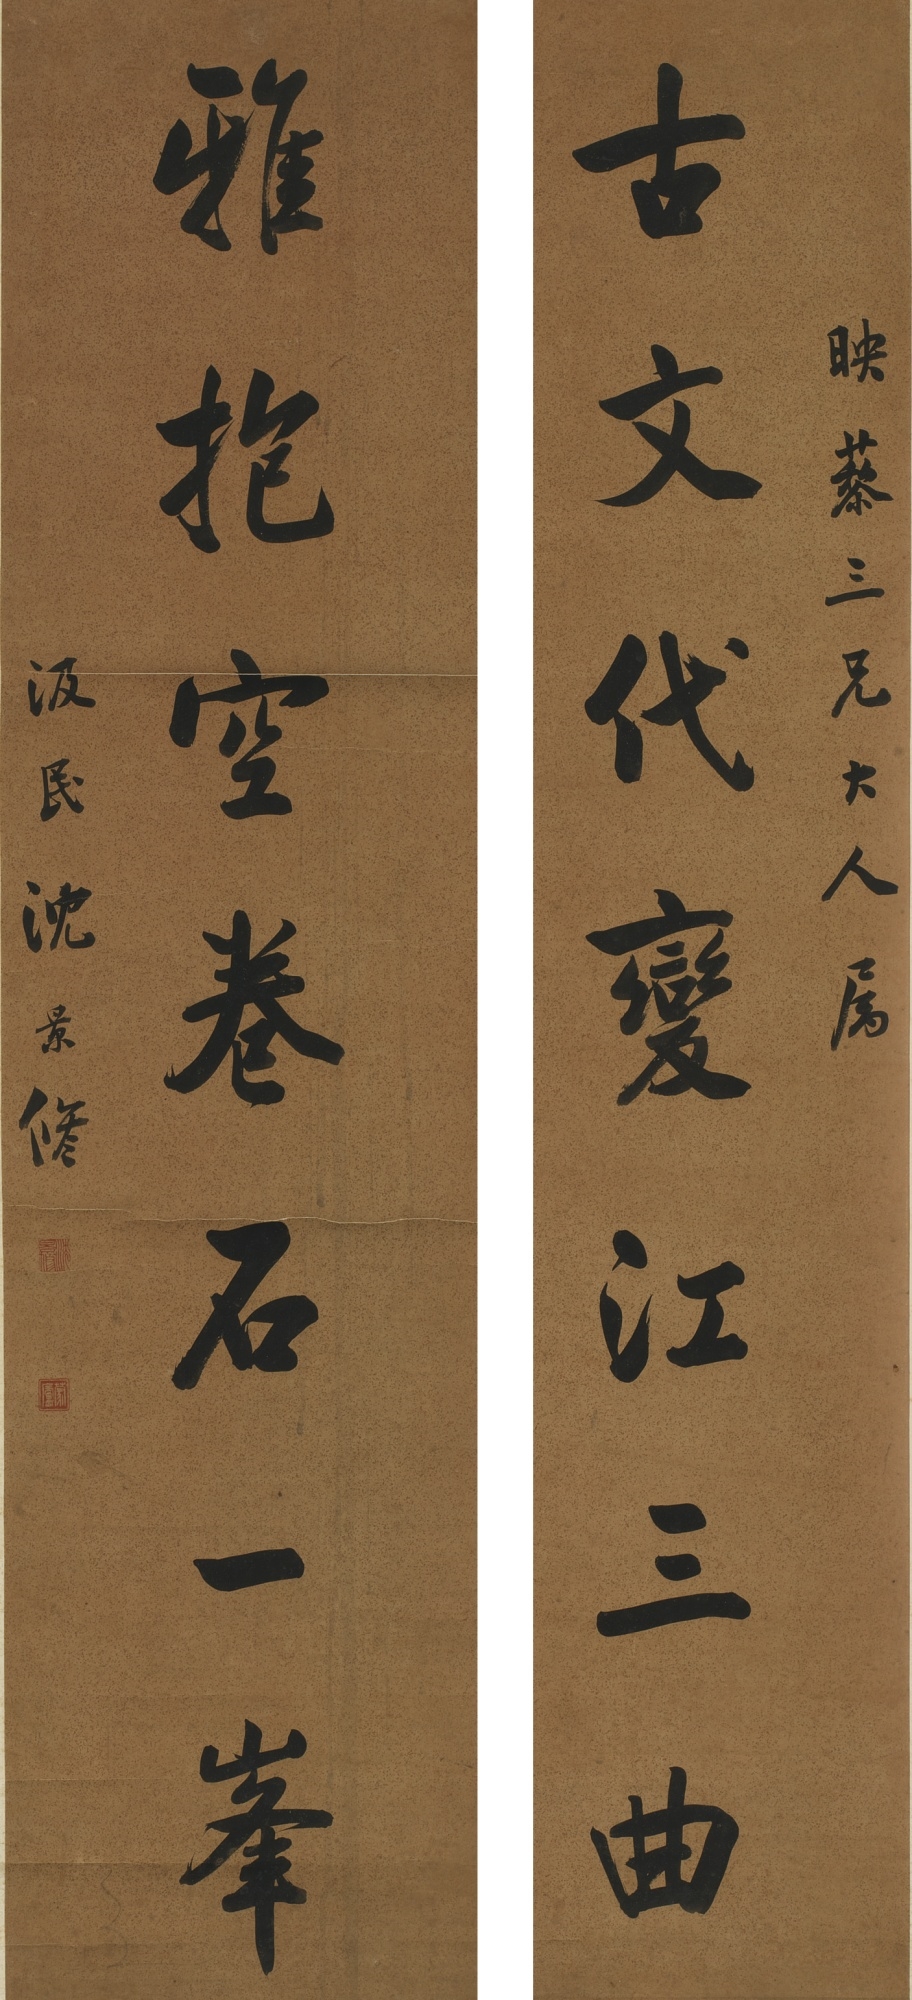 映藜三兄大人属
古文代變江三曲
雅抱空卷石一峯
汲民沈景修